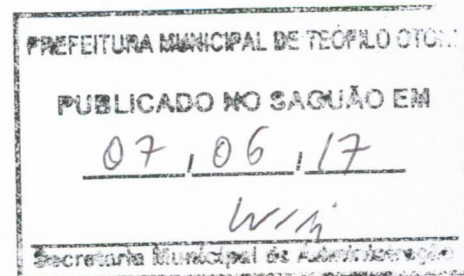 PREFEITURA MUNICIPAL DE TEÓFILO OTONI
PUBLICADO NO SAGUÃO EM
07, 06, 17
Secretaria Municipal de Administração